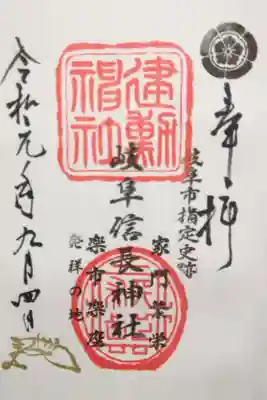 奉拝
岐阜市指定史跡
建勲神社
岐阜信長神社
家門繁栄
楽市楽座
発祥の地
令和元年九月四日